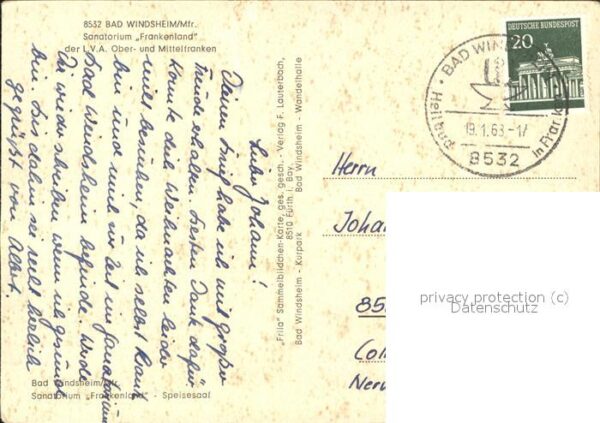 8532 BAD WINDSHEIM/Mfr.
Sanatorium „Frankenland"
der L.V.A. Ober- und Mittelfranken
Lieber Johann!
Deinen Brief habe ich mit großer
Freude erhalten. Besten Dank dafür
konnte dich Weihnachten leider
nicht besuchen, da ich selbst krank
bin und zurzeit im Sanatorium
Bad Windsheim befinde. Werde
Dir wieder schreiben wenn ich gesund
bin. Bis dahin sei recht herzlich
gegrüßt von Albert.
„Frila" Sammelbildchen-Karte, ges. gesch. - Verlag F. Lauterbach,
8510 Fürth i. Bay.
Bad Windsheim - Kurpark Bad Windsheim - Wandelhalle
Bad Windsheim/Mfr.
Sanatorium „Frankenland" - Speisesaal
DEUTSCHE BUNDESPOST
20
BAD WIN
19.1.68-17
8532
Heilbad
in Fran
Herrn
Joha
85
Col
Ner
privacy protection (c)
Datenschutz